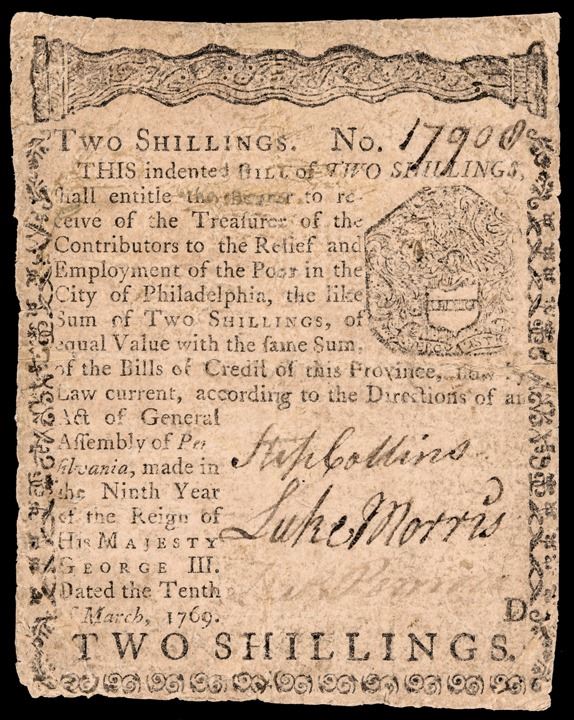 TWO SHILLINGS. No. 17908
THIS indented BILL of TWO SHILLINGS,
ſhall entitle the Bearer to re-
ceive of the Treaſurer of the
Contributors to the Relief and
Employment of the Poor in the
City of Philadelphia, the like
Sum of TWO SHILLINGS, of
equal Value with the ſame Sum
of the Bills of Credit of this Province, now by
Law current, according to the Directions of an
Act of General
Aſſembly of
ſilvania, made in
the Ninth Year
of the Reign of
HIS MAJESTY
GEORGE III.
Dated the Tenth
of March, 1769.
Step Collins
Luke Morris
D
TWO SHILLINGS.